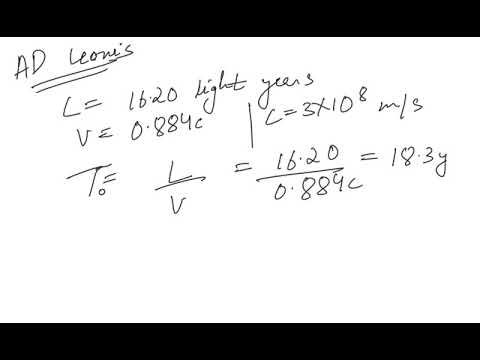 AD Leonis
L = 16.20 light years
V = 0.884c
C = 3×10⁸ m/s
T₀ = L/V = 16.20/0.884c = 18.3y